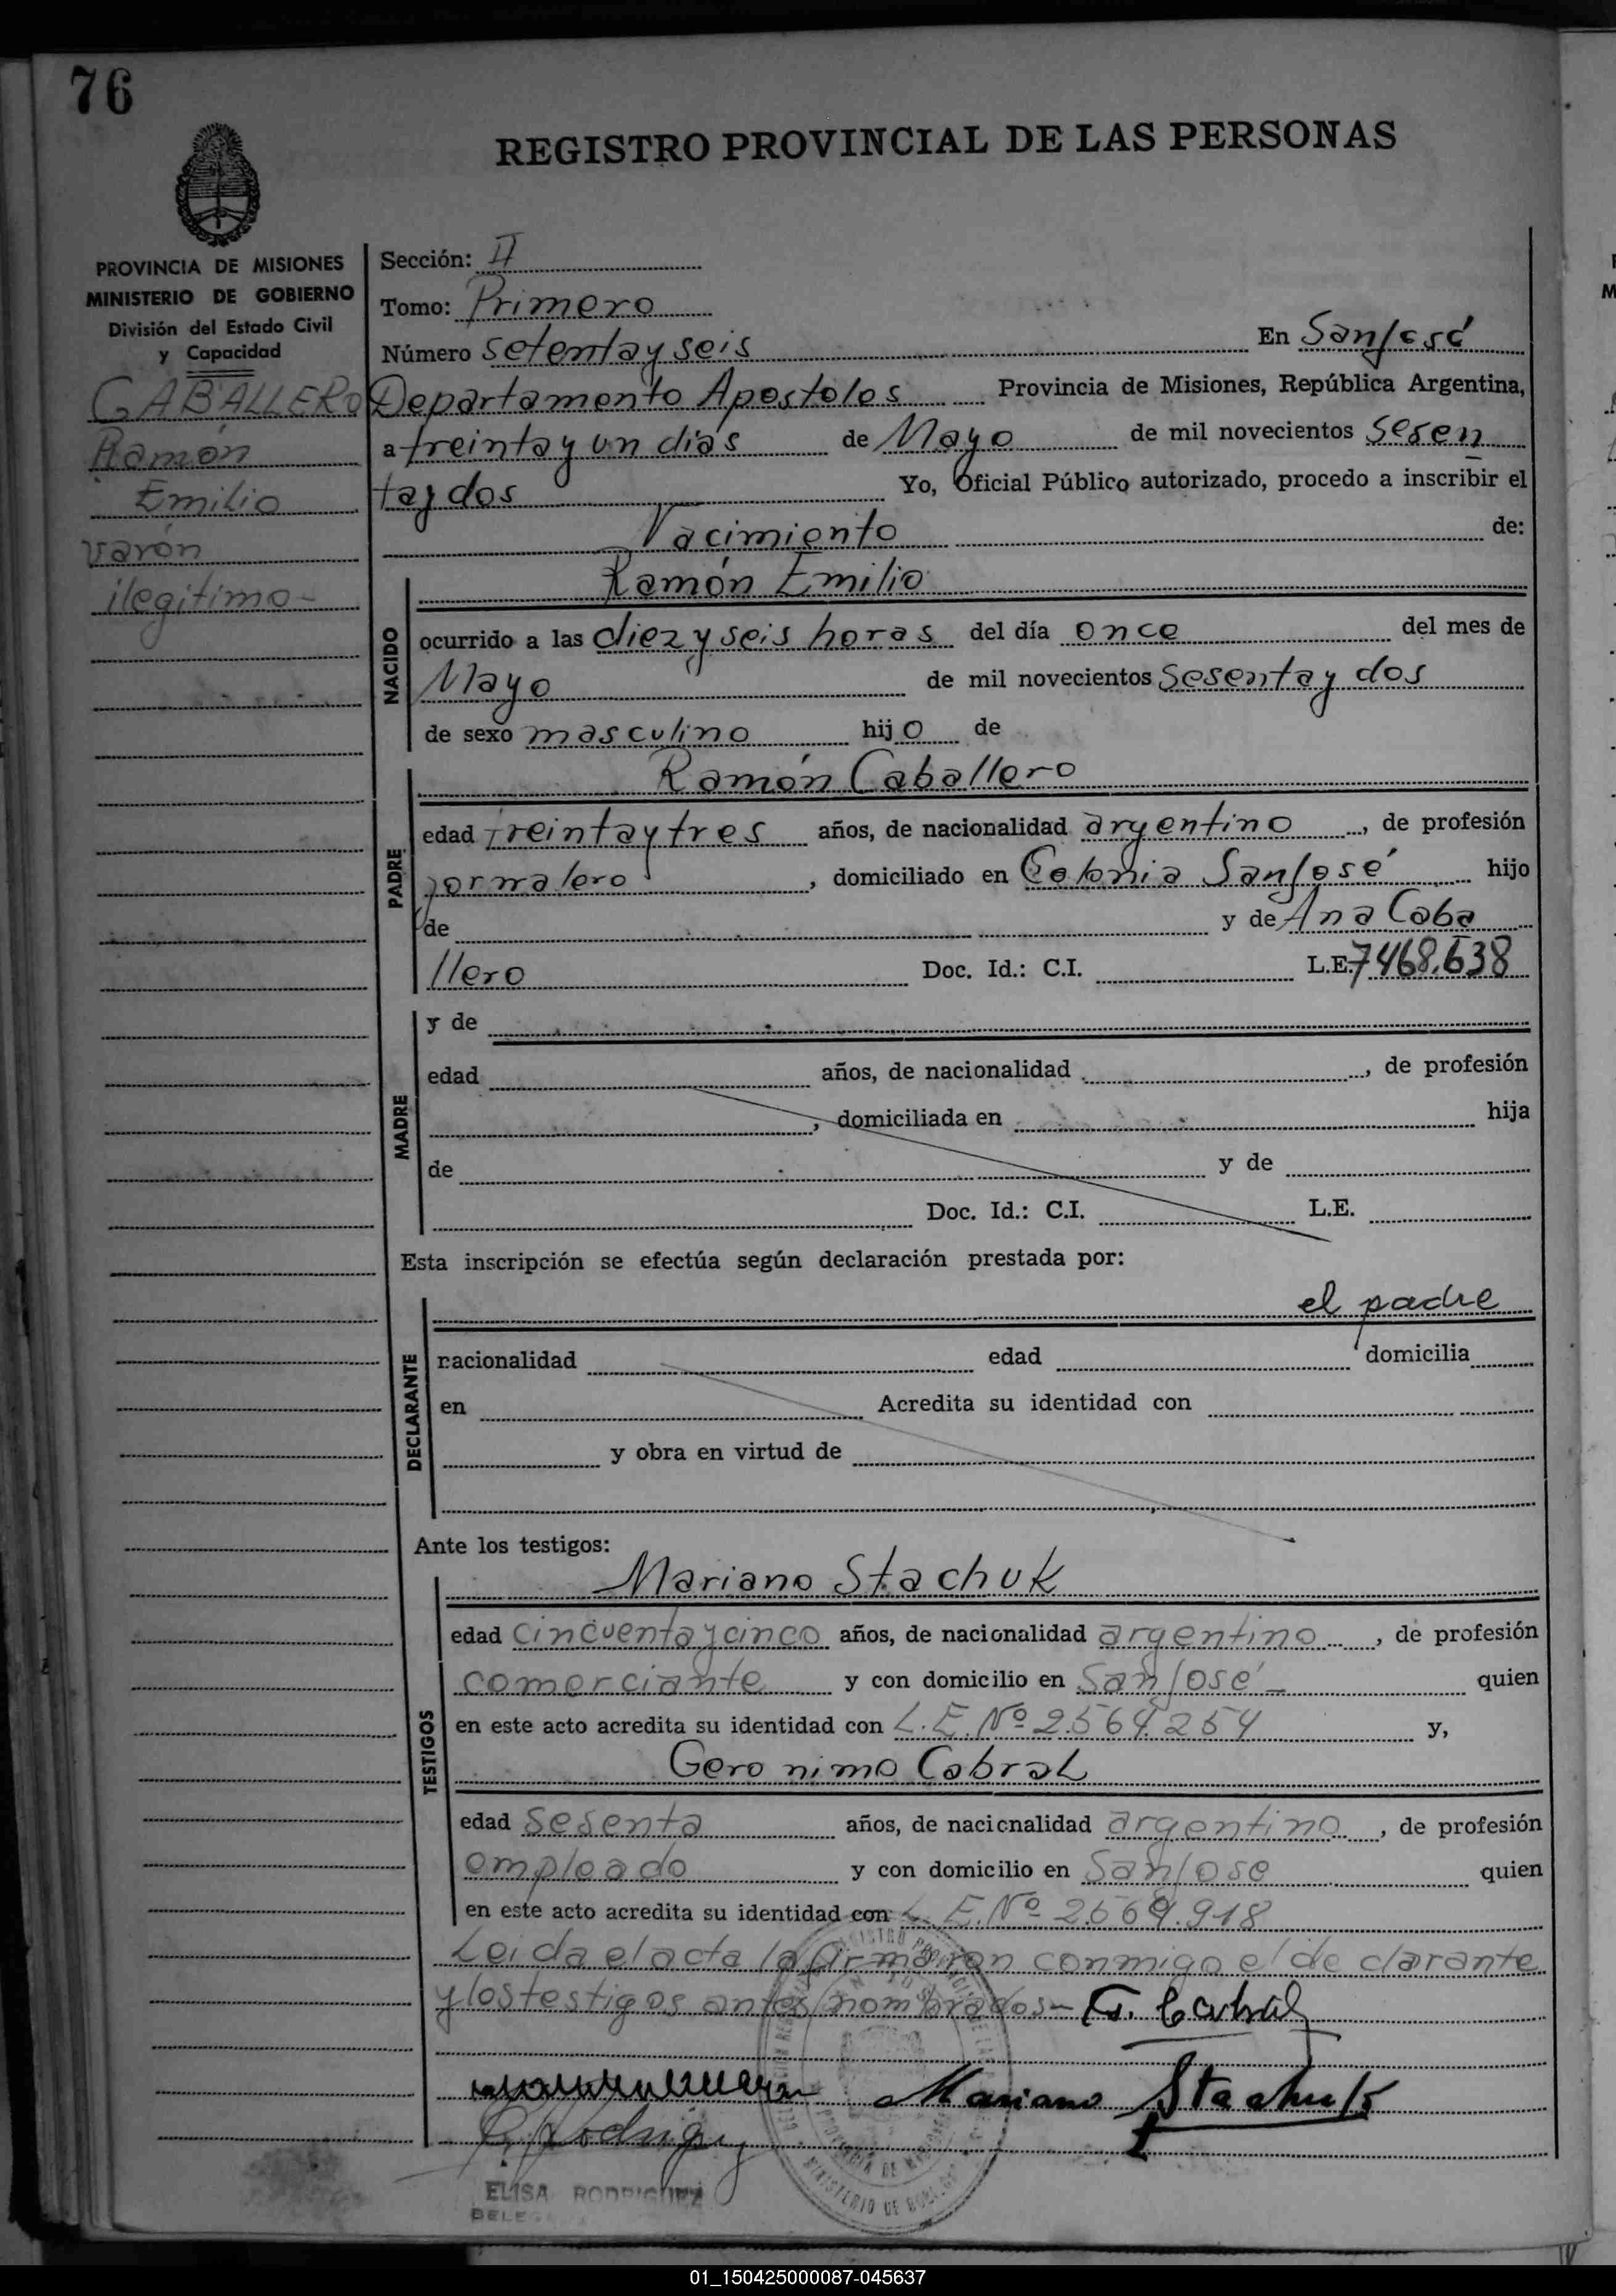 76
REGISTRO PROVINCIAL DE LAS PERSONAS
PROVINCIA DE MISIONES
MINISTERIO DE GOBIERNO
División del Estado Civil
y Capacidad
CABALLERO
Ramón
Emilio
varón
ilegitimo-
Sección: II
Tomo: Primero
Número setenta y seis En San José
Departamento Apostoles Provincia de Misiones, República Argentina,
a treinta y un dias de Mayo de mil novecientos sesen
ta y dos Yo, Oficial Público autorizado, procedo a inscribir el
Nacimiento de:
NACIDO
Ramón Emilio
ocurrido a las diez y seis horas del día once del mes de
Mayo de mil novecientos sesenta y dos
de sexo masculino hijo de
PADRE
Ramón Caballero
edad treinta y tres años, de nacionalidad argentino, de profesión
jornalero, domiciliado en Colonia San José hijo
de y de Ana Caba
llero Doc. Id.: C.I. L.E. 7468.638
MADRE
y de
edad años, de nacionalidad, de profesión
, domiciliada en hija
de y de
Doc. Id.: C.I. L.E.
Esta inscripción se efectúa según declaración prestada por:
DECLARANTE
el padre
nacionalidad edad domicilia
en Acredita su identidad con
y obra en virtud de
Ante los testigos:
TESTIGOS
Mariano Stachuk
edad cincuenta y cinco años, de nacionalidad argentino, de profesión
comerciante y con domicilio en San José - quien
en este acto acredita su identidad con L.E. Nº 2.564.254 y,
Gero nimo Cabral
edad sesenta años, de nacionalidad argentino, de profesión
empleado y con domicilio en San Jose quien
en este acto acredita su identidad con L.E. Nº 2.569.918
Leida el acta la firmaron conmigo el declarante
y los testigos antes nombrados- G. Cabral
Mariano Stachuk
E. Rodriguez
ELISA RODRIGUEZ
01_150425000087-045637